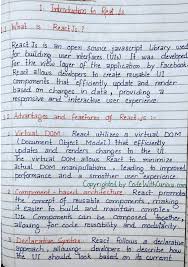 1. Introduction to React Js
1 What is ReactJs?
ReactJs is an open source javascript library used
for building user interfaces (UIs). It was developed
for the view layer of the application by Facebook.
React allows developers to create reusable UI
components that efficiently update and render
based on changes in data, providing a
responsive and interactive user experience.
Advantages and features of ReactJs :-
Virtual DOM : React utilizes a virtual DOM
(Document Object Model) that efficiently
updates and renders changes to the UI.
The virtual DOM allows React to minimize
actual DOM manipulations, leading to improved
performance and a smoother user experience.
Copyrighted by CodeWithCurious.com
Component-based architecture React promotes
the concept of reusable components, making
it easier to build and maintain complex
UIs. Components can be composed together,
allowing for code reusability and modularity.
Declarative Syntax : React follows a declarative
approach, allowing developers to describe how
the UI should look based on its current